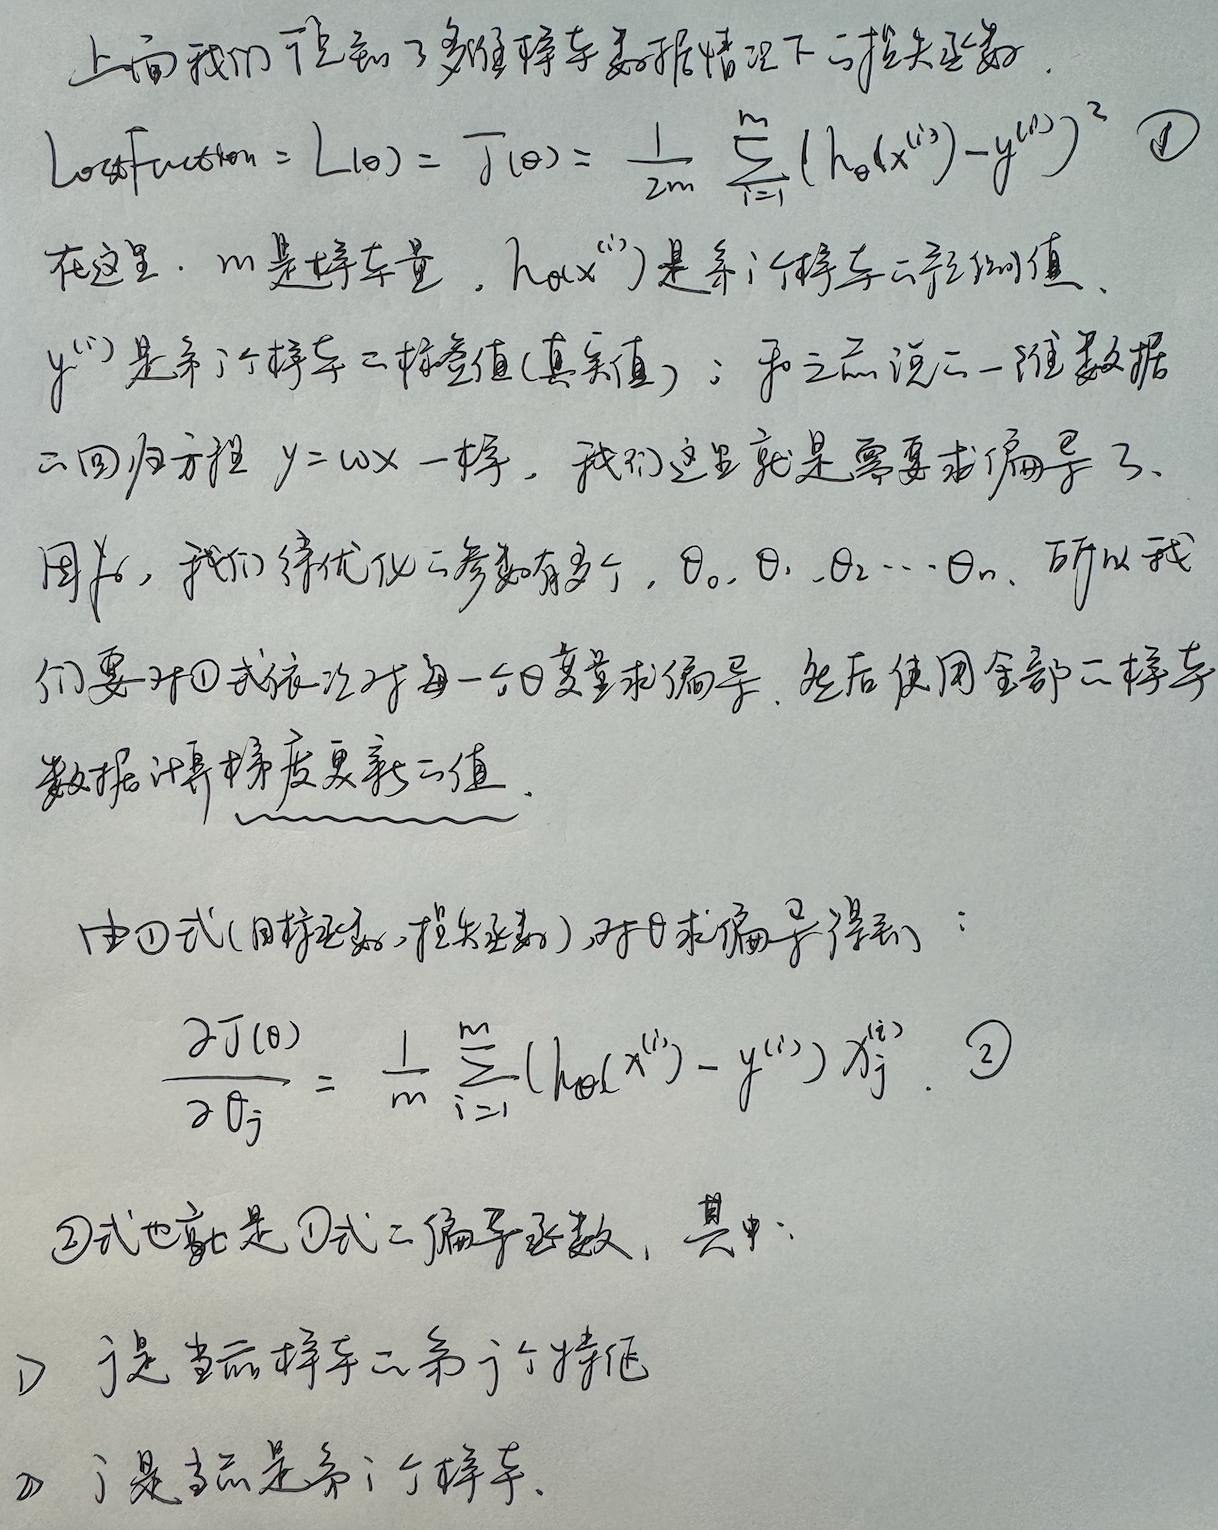 上面我们说到了多维样本数据情况下的损失函数.
LossFunction = L(θ) = J(θ) = \frac{1}{2m} \sum_{i=1}^{m} (h_θ(x^{(i)}) - y^{(i)})^2 ①
在这里. m是样本量, h_θ(x^{(i)})是第i个样本的预测值、
y^{(i)}是第i个样本的标签值(真实值); 和之前说的一维数据
的回归方程 y=wx 一样, 我们这里就是需要求偏导了、
因为, 我们待优化的参数有多个, θ_0、θ_1、θ_2…θ_n、所以我
们要对①式依次对每一个θ变量求偏导、然后使用全部的样本
数据计算梯度更新的值.
由①式(目标函数、损失函数)、对θ求偏导得到:
\frac{∂J(θ)}{∂θ_j} = \frac{1}{m} \sum_{i=1}^{m} (h_θ(x^{(i)}) - y^{(i)}) x_j^{(i)}. ②
②式也就是①式的偏导函数, 其中:
1) j是当前样本的第j个特征
2) i是当前是第i个样本.